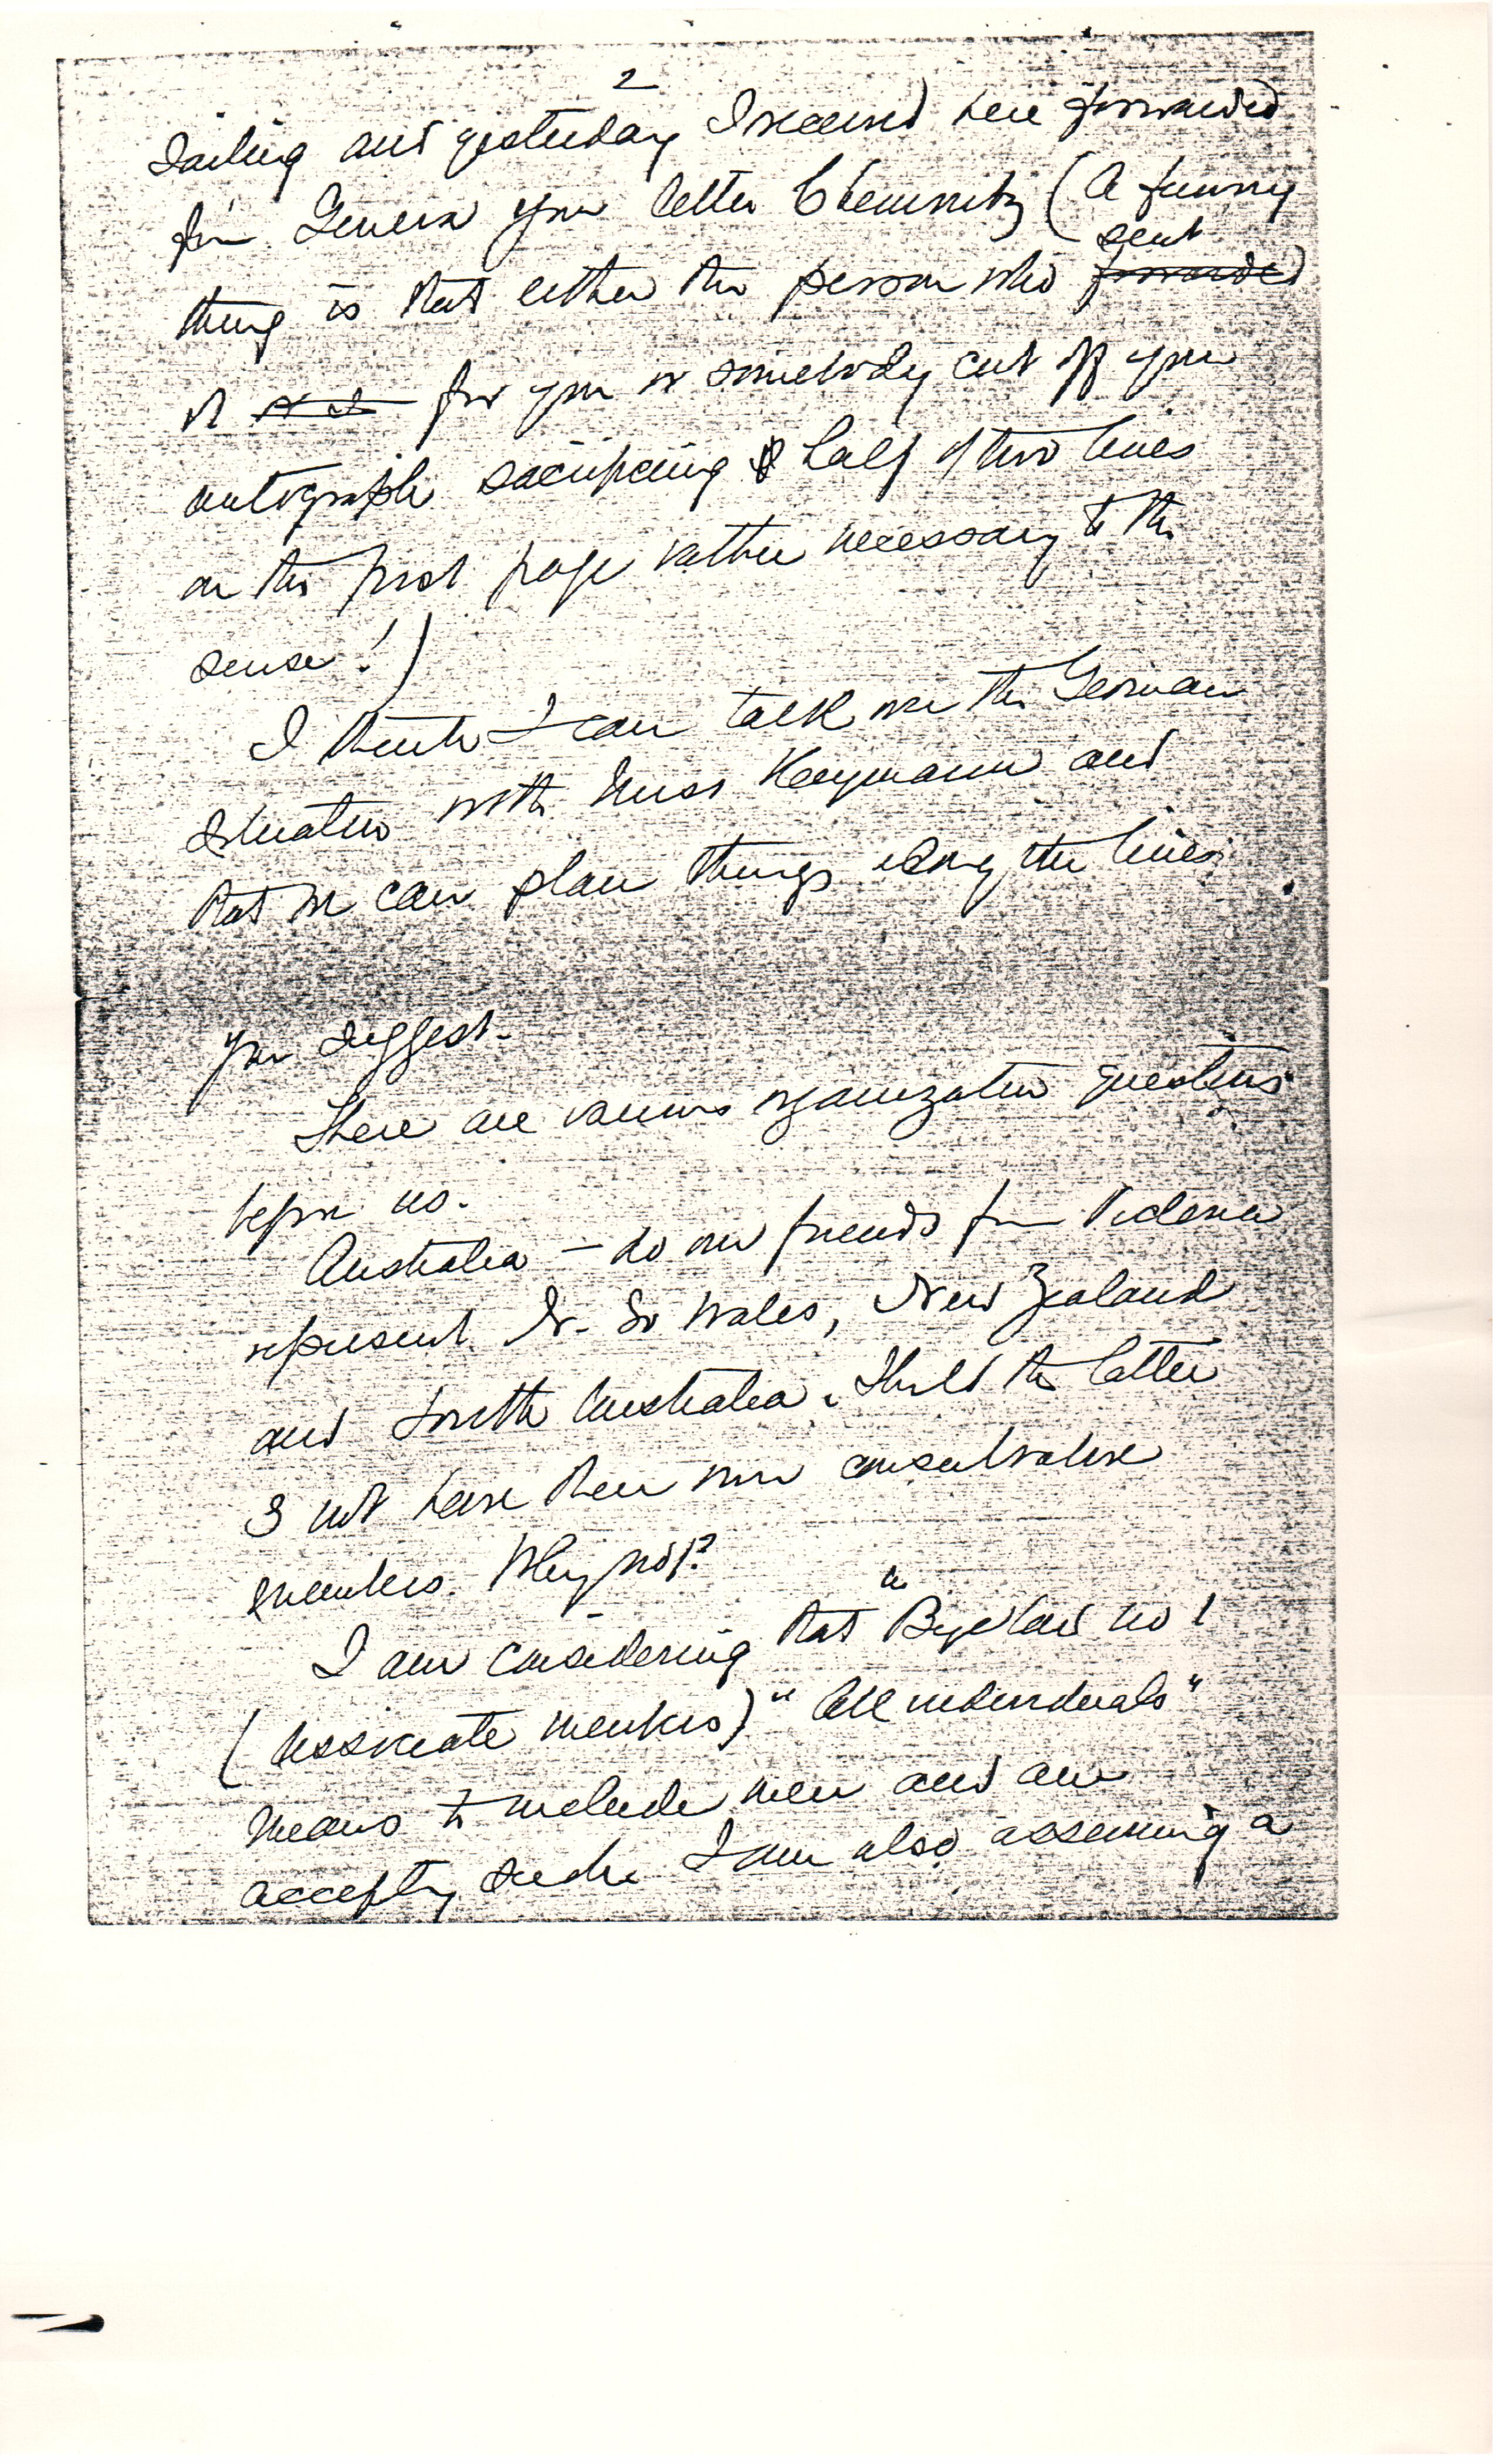 2
sailing and yesterday I received here forwarded
fr'm Geneva your letter Chemnitz (A funny
sent
thing is that either the person who forwarded
it for you or somebody cut off your
autograph sacrificing half of two lines
on the first page rather necessary to the
sense!)
I think I can talk over the German
situation with Miss Heymann and
that we can plan things along the lines
you suggest.
There are various organization questions
before us.
Australia — do our friends from Victoria
represent N. So Wales, New Zealand
and South Australia. Shld the latter
3 not have their own consultative
members. Why not?
in
I am considering that Bye Law no 1
(Associate members) "All individuals"
means to include men and am
accepting such. I am also assuming a